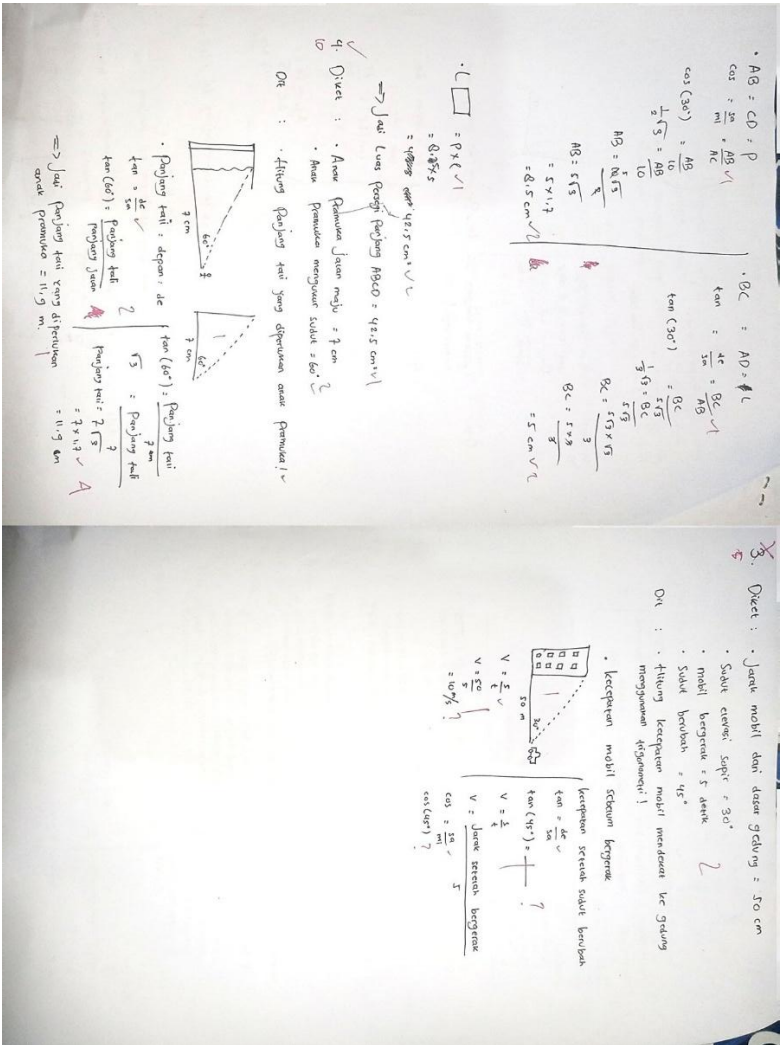 • AB = CD = P
cos = sa/mi = AB/AC √1
cos (30°) = AB/10
1/2 √3 = AB/10
AB = 5√3
= 5 x 1,7
= 8,5 cm √2
• BC = AD = L
tan = de/sa = BC/AB √1
tan (30°) = BC/5√3
1/3 √3 = BC/5√3
BC = 5√3 x √3 / 3
BC = 5 x 3 / 3
= 5 cm √2
• L □ = P x L √1
= 8,5 x 5
= 42,5 cm² √2
=> Jadi Luas Persegi Panjang ABCD = 42,5 cm² √1
4. Diket : • Anak Pramuka jalan maju = 7 cm
10
• Anak Pramuka mengukur sudut = 60° 2
Dit : • Hitung Panjang tali yang diperlukan anak Pramuka! √
60°
7 cm
60°
7 cm
1
• Panjang tali = depan = de
tan = de/sa √
tan (60°) = Panjang tali / panjang jalan
2
tan (60°) = Panjang tali / 7 cm
√3 = Panjang tali / 7
Panjang tali = 7√3
= 7 x 1,7 √ 4
= 11,9 cm
=> Jadi Panjang tali yang diperlukan
anak pramuka = 11,9 m. 1
3. Diket : • Jarak mobil dari dasar gedung = 50 cm
5
• Sudut elevasi sopir = 30°
• mobil bergerak = 5 detik 2
• Sudut berubah = 45°
Dit : • Hitung kecepatan mobil mendekat ke gedung
menggunakan trigonometri!
30°
50 m
1
• Kecepatan mobil sebelum bergerak
V = s/t √
V = 50/5 1
= 10 m/s ?
Kecepatan setelah sudut berubah
tan = de/sa √
tan (45°) = ?
V = s/t
V = Jarak setelah bergerak / 5
cos = sa/mi √
cos (45°) ?